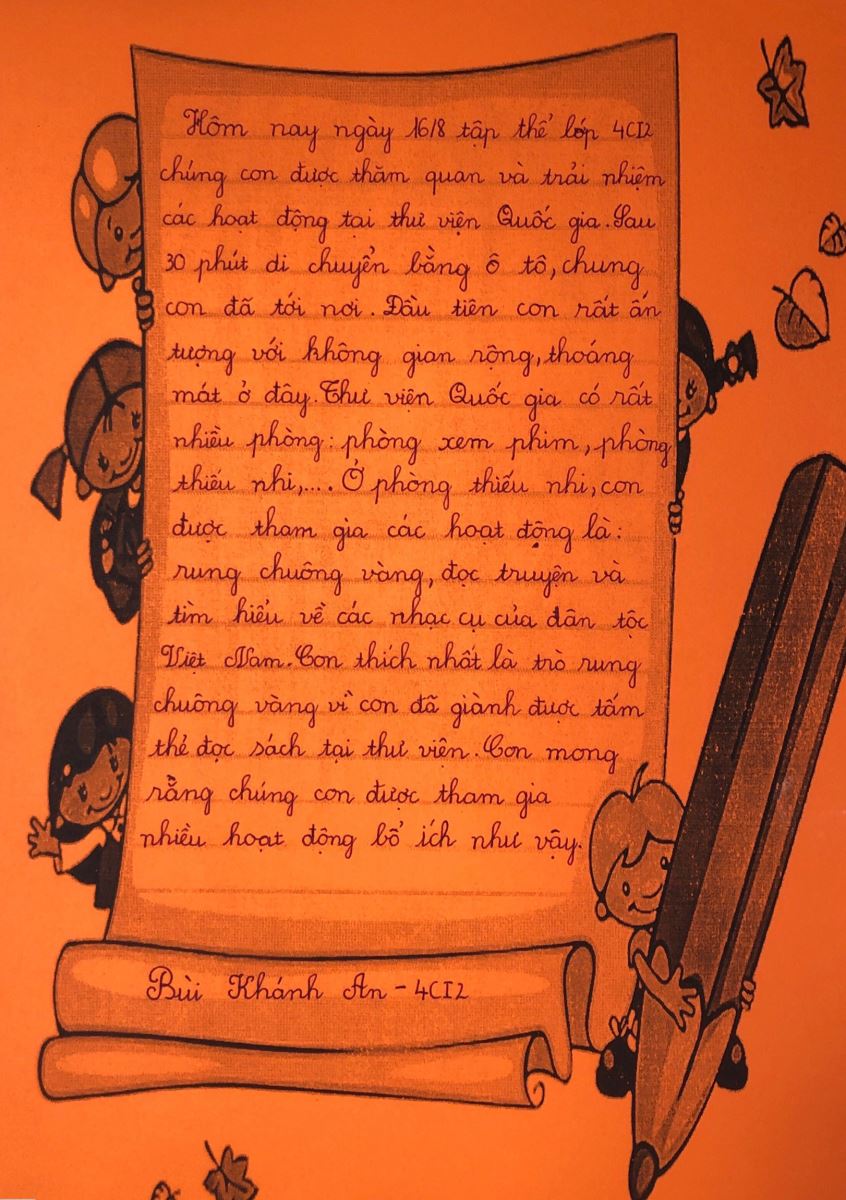 Hôm nay ngày 16/8 tập thể lớp 4CI2
chúng con được thăm quan và trải nhiệm
các hoạt động tại thư viện Quốc gia. Sau
30 phút di chuyển bằng ô tô, chung
con đã tới nơi. Đầu tiên con rất ấn
tượng với không gian rộng, thoáng
mát ở đây. Thư viện Quốc gia có rất
nhiều phòng: phòng xem phim, phòng
thiếu nhi,.... Ở phòng thiếu nhi, con
được tham gia các hoạt động là:
rung chuông vàng, đọc truyện và
tìm hiểu về các nhạc cụ của dân tộc
Việt Nam. Con thích nhất là trò rung
chuông vàng vì con đã giành được tấm
thẻ đọc sách tại thư viện. Con mong
rằng chúng con được tham gia
nhiều hoạt động bổ ích như vậy.
Bùi Khánh An - 4CI2